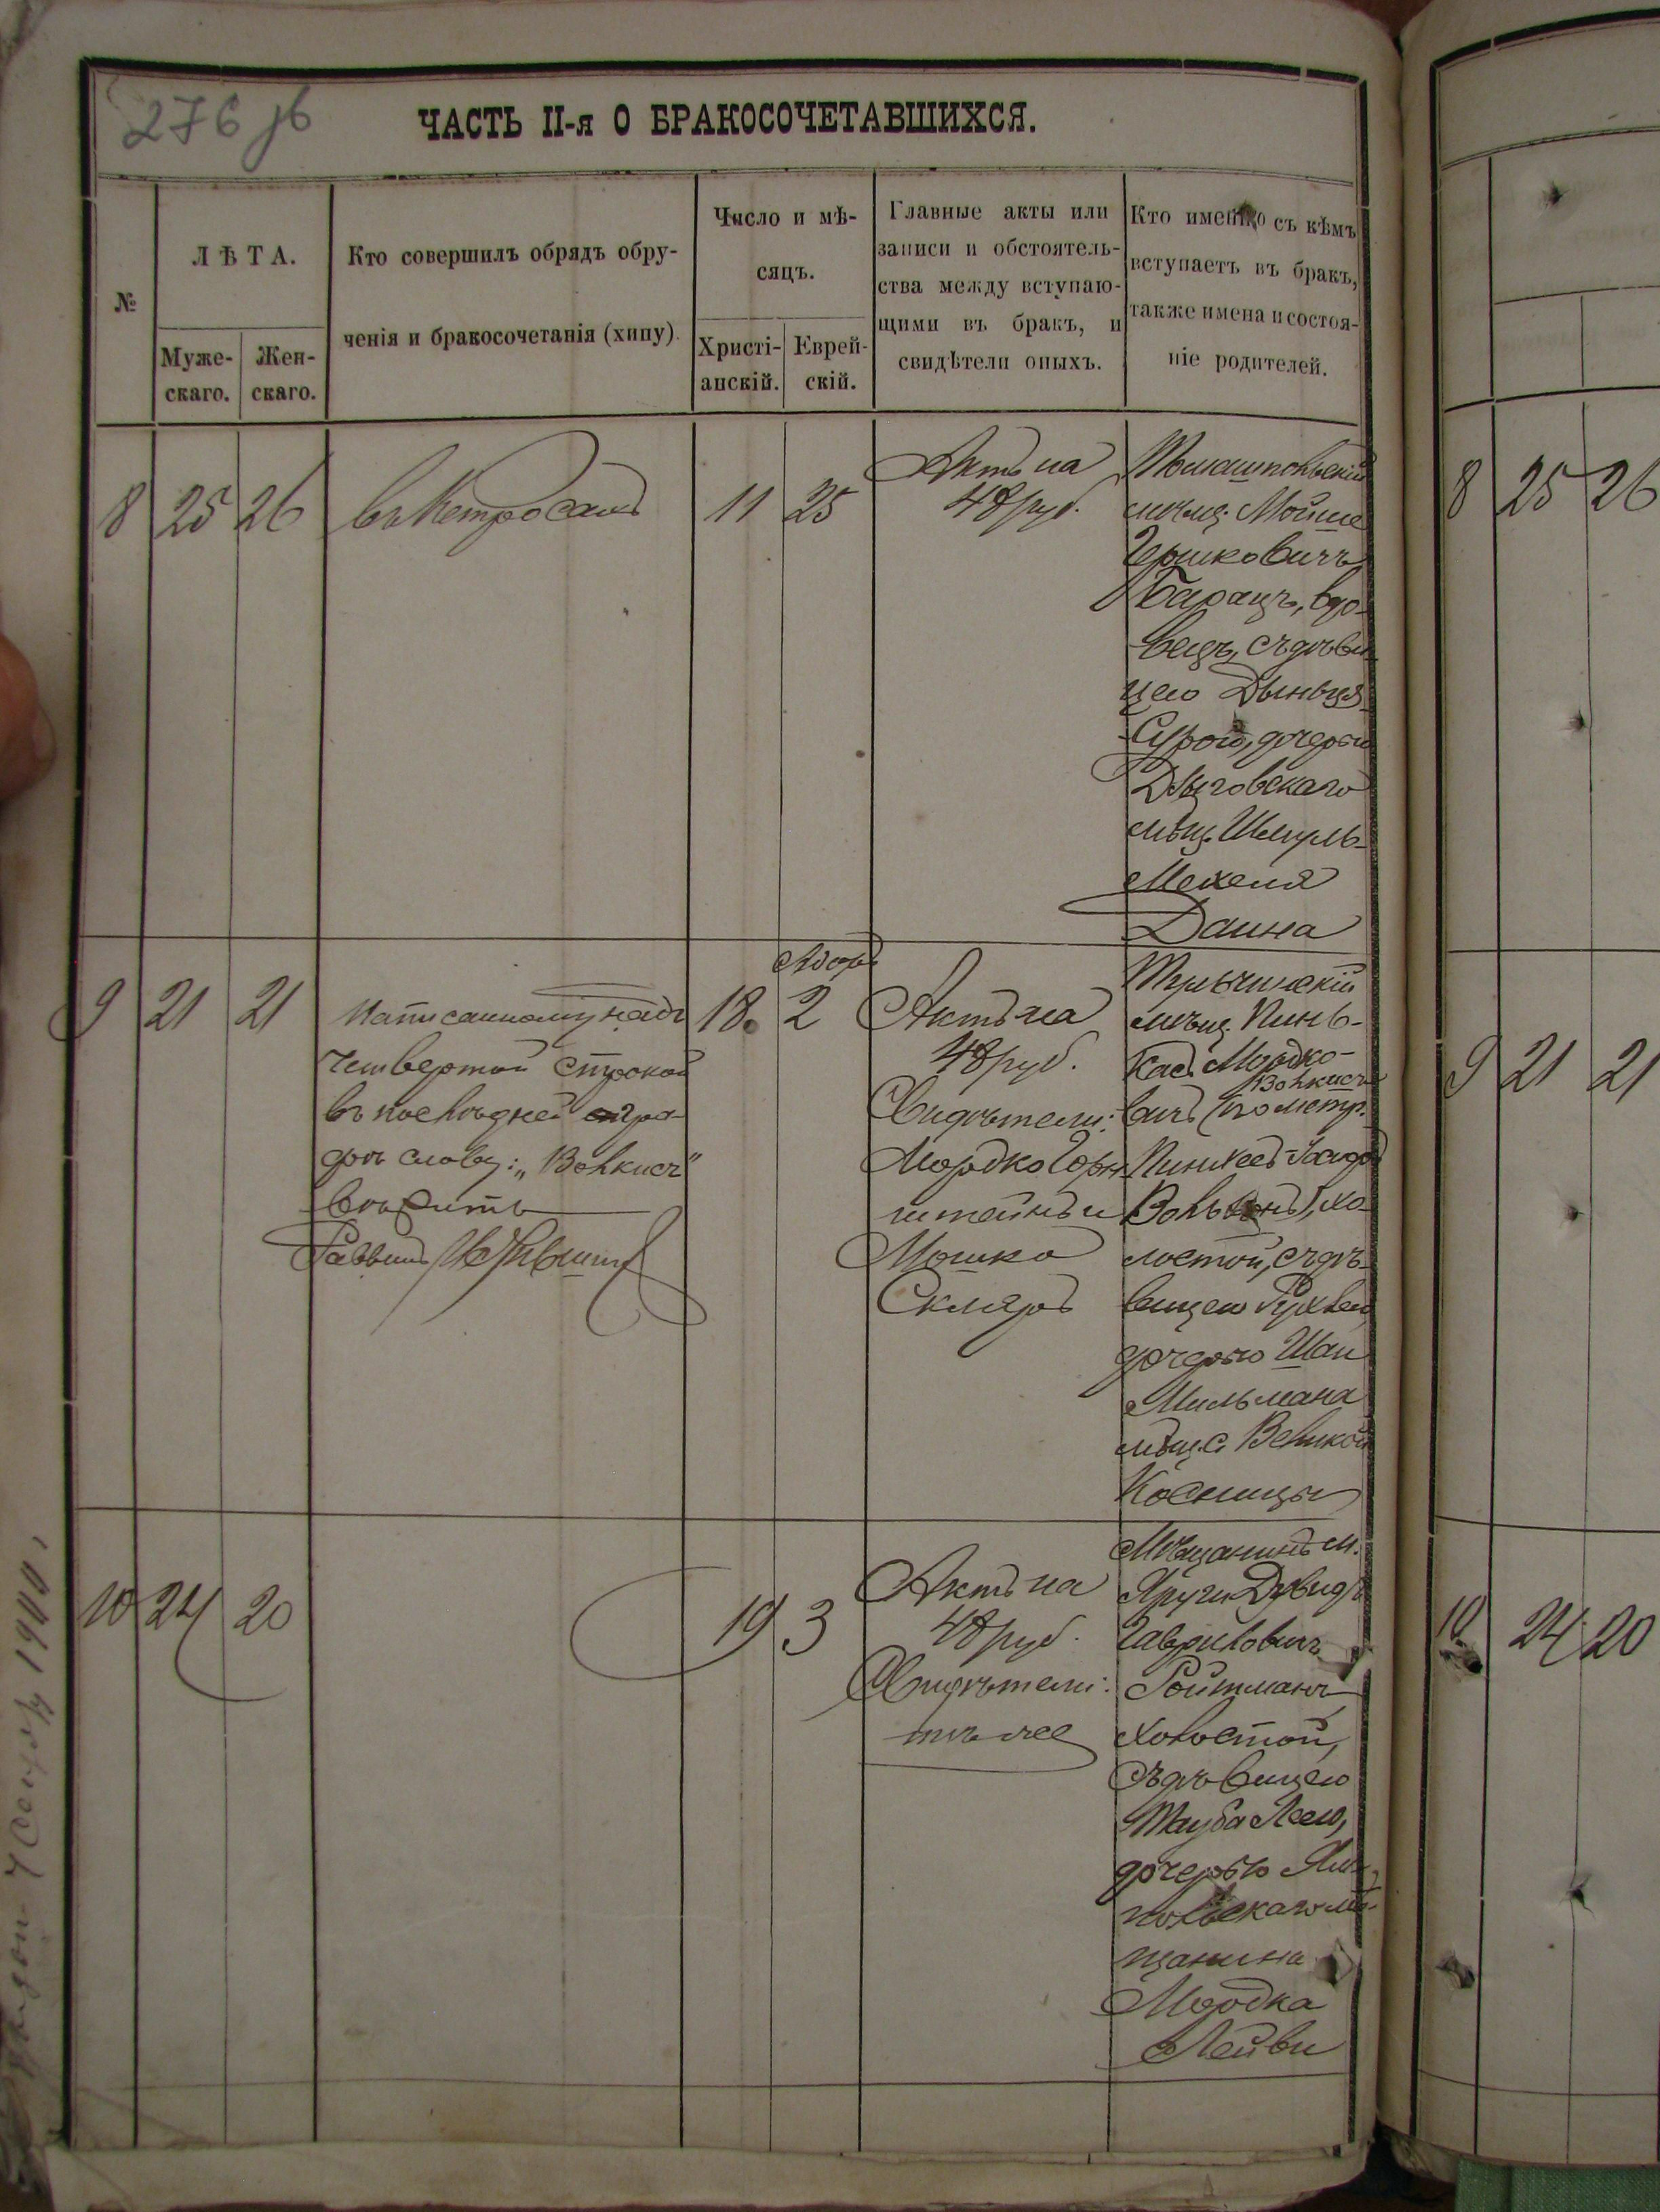 276 зв
ЧАСТЬ II-я О БРАКОСОЧЕТАВШИХСЯ.
№
ЛѢТА.
Муже-
скаго.
Жен-
скаго.
Кто совершилъ обрядъ обру-
ченія и бракосочетанія (хипу).
Число и мѣ-
сяцъ.
Христі-
анскій.
Еврей-
скій.
Главные акты или
записи и обстоятель-
ства между вступаю-
щими въ бракъ, и
свидѣтели оныхъ.
Кто именно съ кѣмъ
вступаетъ въ бракъ,
также имена и состоя-
ніе родителей.
8 25 26
11 25
Актъ на
48 руб.
мѣщ. Мойше
Гершковичъ
Барацъ, вдо-
вецъ, съ дѣви-
цею
Сурою, дочерью
Дзыговскаго
мѣщ. Шмуль-
Мехеля
Данна
9 21 21
Написанному надъ
четвертой строкой
въ послѣдней гра-
фѣ слову: „Волкисъ"
вѣрить
Раввинъ
18. 2
Актъ на
48 руб.
Свидѣтели:
Мордко Горн-
штейнъ и
Мошко
Скляръ
Тульчинскій
мѣщ. Пинь-
касъ Мордко-
Волкисъ
вичъ (по метр.
Пинкес
), хо-
лостой, съ дѣ-
вицею Рухлею
дочерью Шаи
Мильмана
мѣщ. с. Великой
Косницы
10 24 20
19 3
Актъ на
48 руб.
Свидѣтели:
тѣ же
Мѣщанинъ м.
Яруги Дувидъ
Гавриловичъ
Ройтманъ
холостой,
съ дѣвицею
Тауба Леею,
дочерью Ям-
польскаго мѣ-
щанина
Мордка
Лейви
8 25 26
9 21 21
10 24 20